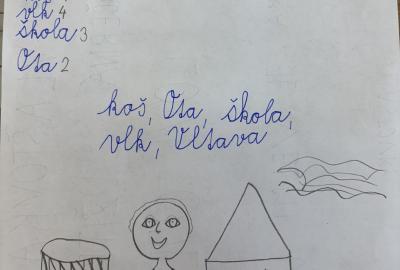 vlk 4
škola 3
Ota 2
koš, Ota, škola,
vlk, Vltava